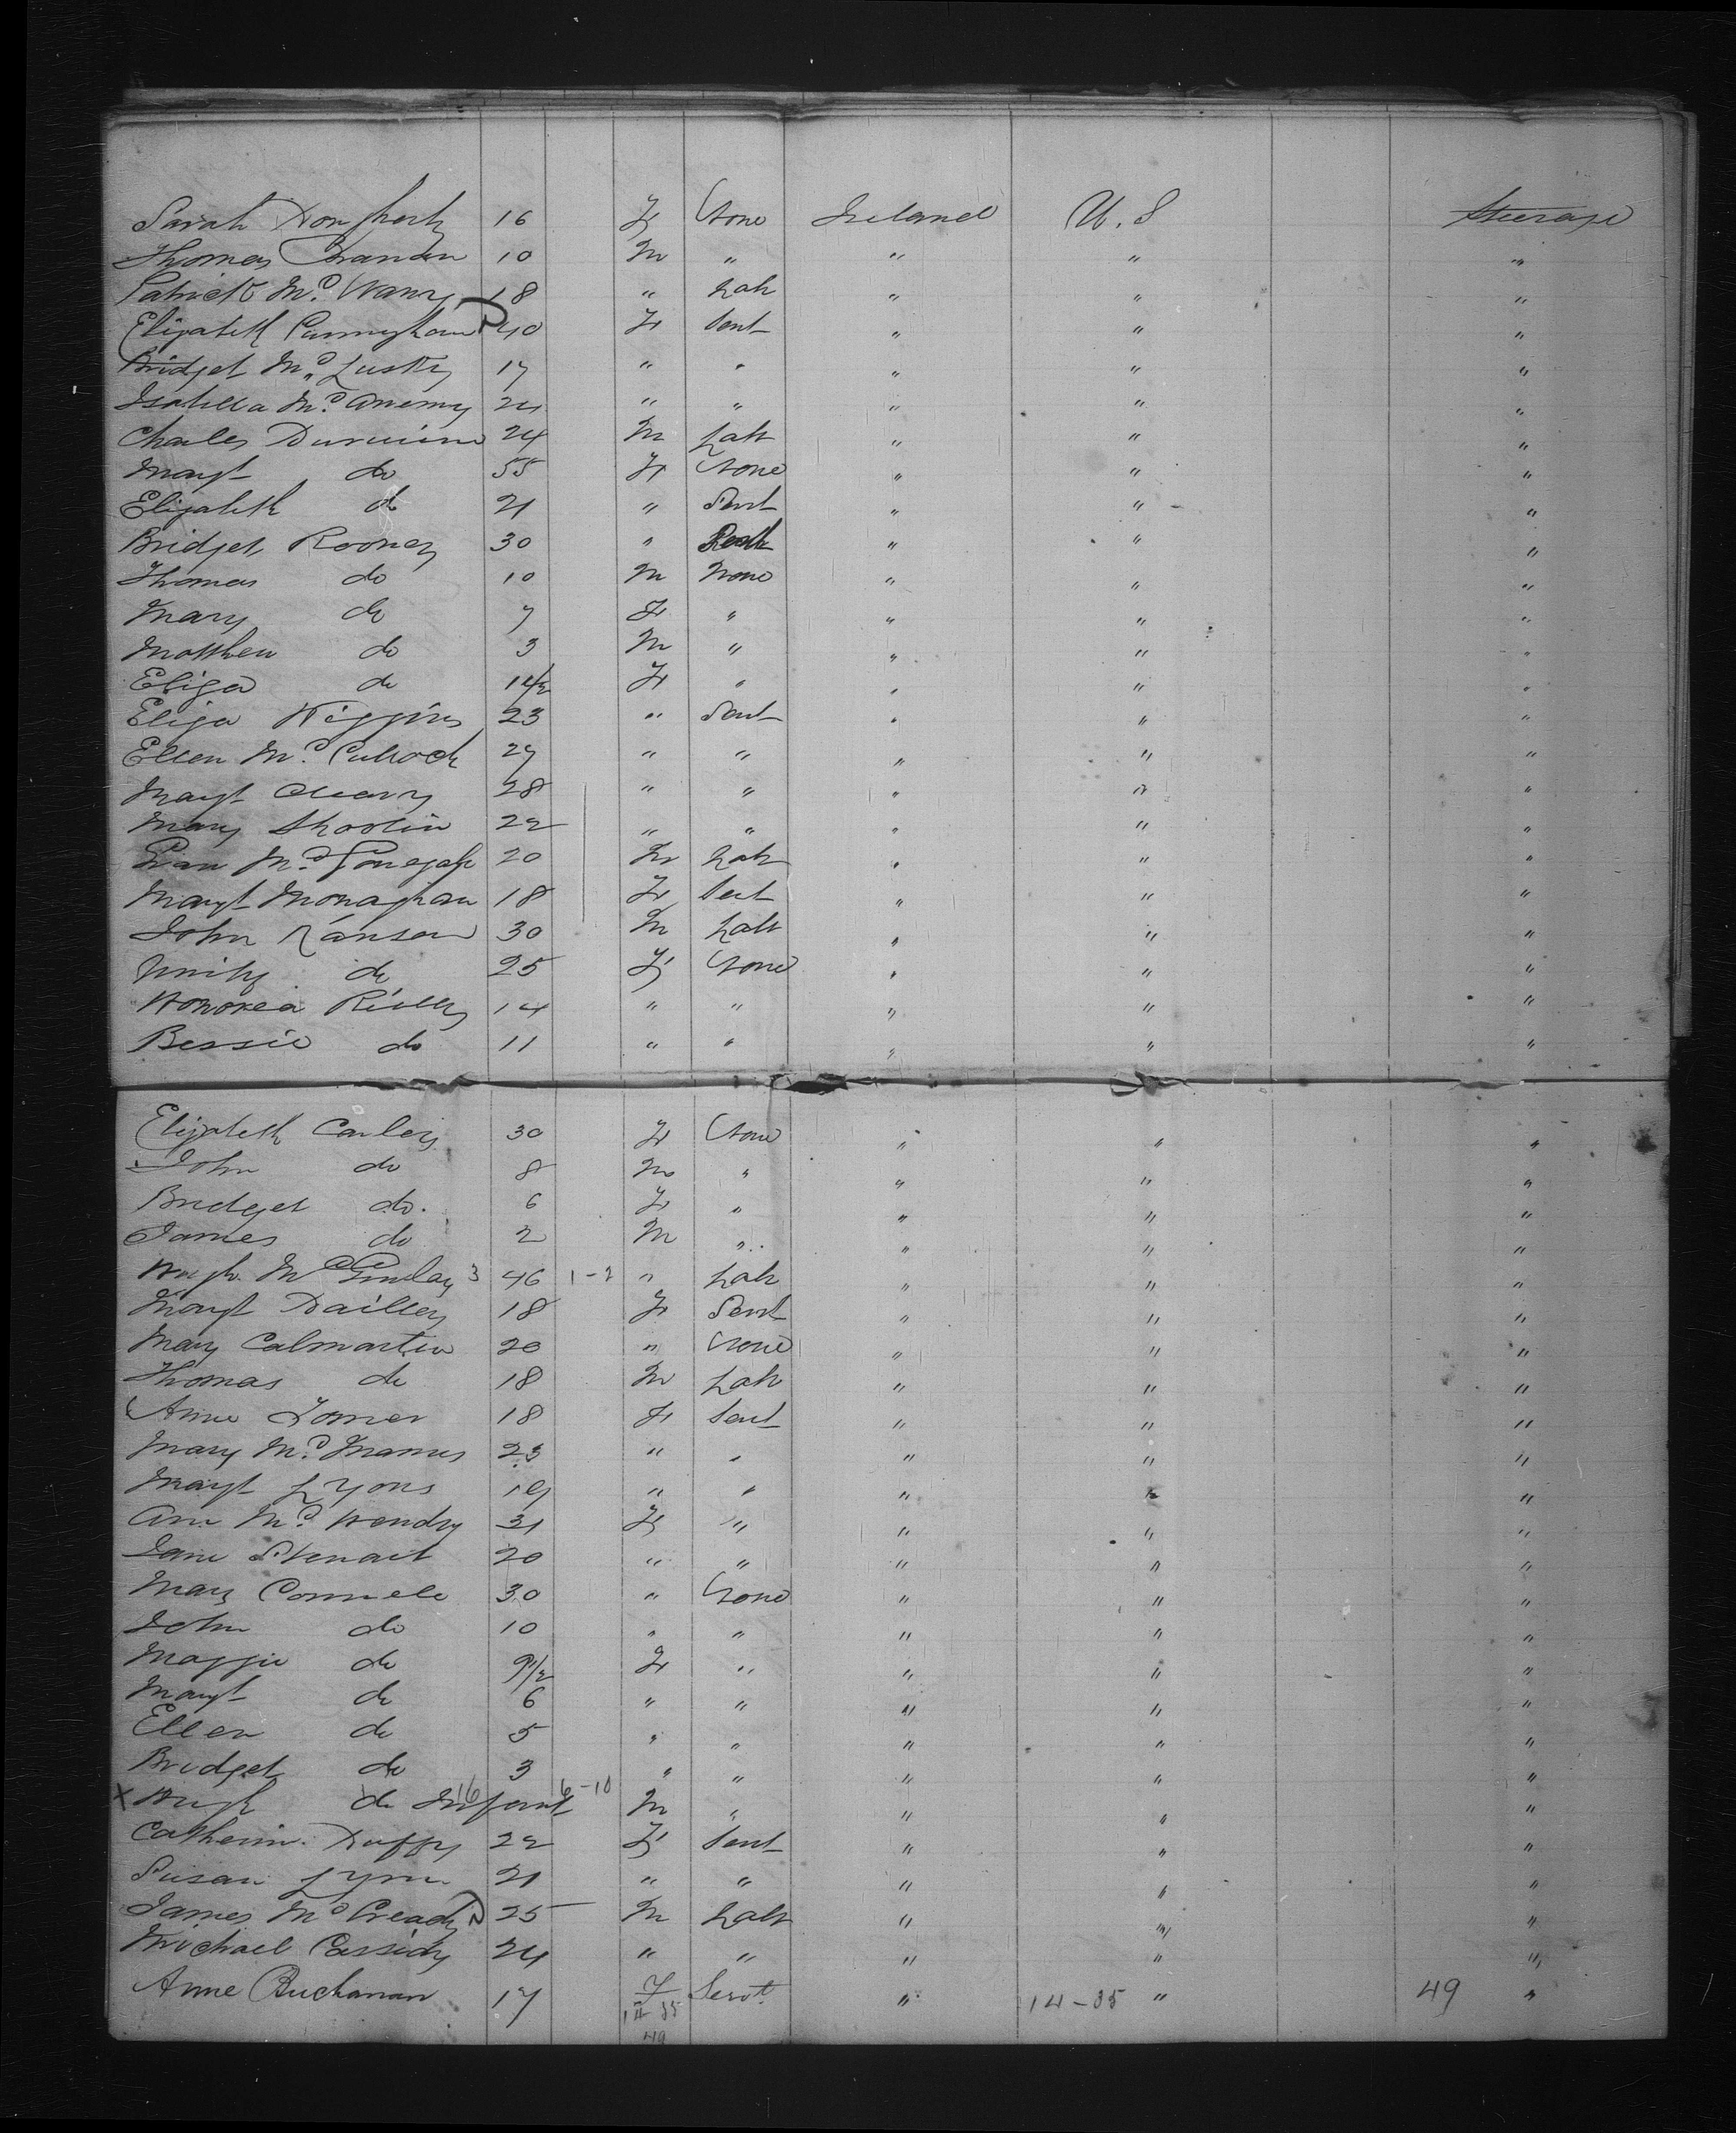 Sarah Dougherty 16 F None Ireland U.S Steerage
Thomas 10 M " " " "
Patrick McD 18 " Lab " " "
Elizabeth Cunningham 40 F Servt " " "
Bridget Mc Lusky 17 " " " " "
Isabella Mc 24 " " " " "
Charles 24 M Labr " " "
Margt do 55 F None " " "
Elizabeth do 21 " Servt " " "
Bridget Rooney 30 " " " "
Thomas do 10 M None " " "
Mary do 7 F " " " "
Matthew do 3 M " " " "
Eliza do F " " " "
Eliza Higgins 23 " Servt " " "
Ellen Mc Cullock 27 " " " " "
Margt 28 " " " " "
Mary Shovlin 22 " " " " "
Mc Gonegale 20 M Labr " " "
Margt Monaghan 18 F Servt " " "
John 30 M Labr " " "
Unity do 25 F None " " "
Honorea Reilly 14 " " " " "
Bessie do 11 " " " " "
Elizabeth Conley 30 F None " " "
John do 8 M " " " "
Bridget do. 6 F " " " "
James do 2 M " " " "
Hugh Mc Ginlay 3 46 1-2 " Labr " " "
Margt 18 F Servt " " "
Mary Calmartin 20 " None " " "
Thomas do 18 M Labr " " "
Anne 18 F Servt " " "
Mary Mc Manus 23 " " " " "
Margt Lyons 19 " " " " "
Ann Mc Hendry 31 F " " " "
Jane Stewart 20 " " " " "
Mary Connell 30 " None " " "
John do 10 " " " " "
Maggie do 9 1/2 F " " " "
Margt do 6 " " " " "
Ellen do 5 " " " " "
Bridget do 3 " " " " "
x Hugh do Infant 16 6-10 M " " " "
Catherin Duffy 22 F Servt " " "
Susan Lynn 21 " " " " "
James Mc Cready 25 M Labr " " "
Michael Cassidy 24 " " " " "
Anne Buchanan 17 F Servt " 14-35 " 49 "
14 35
49